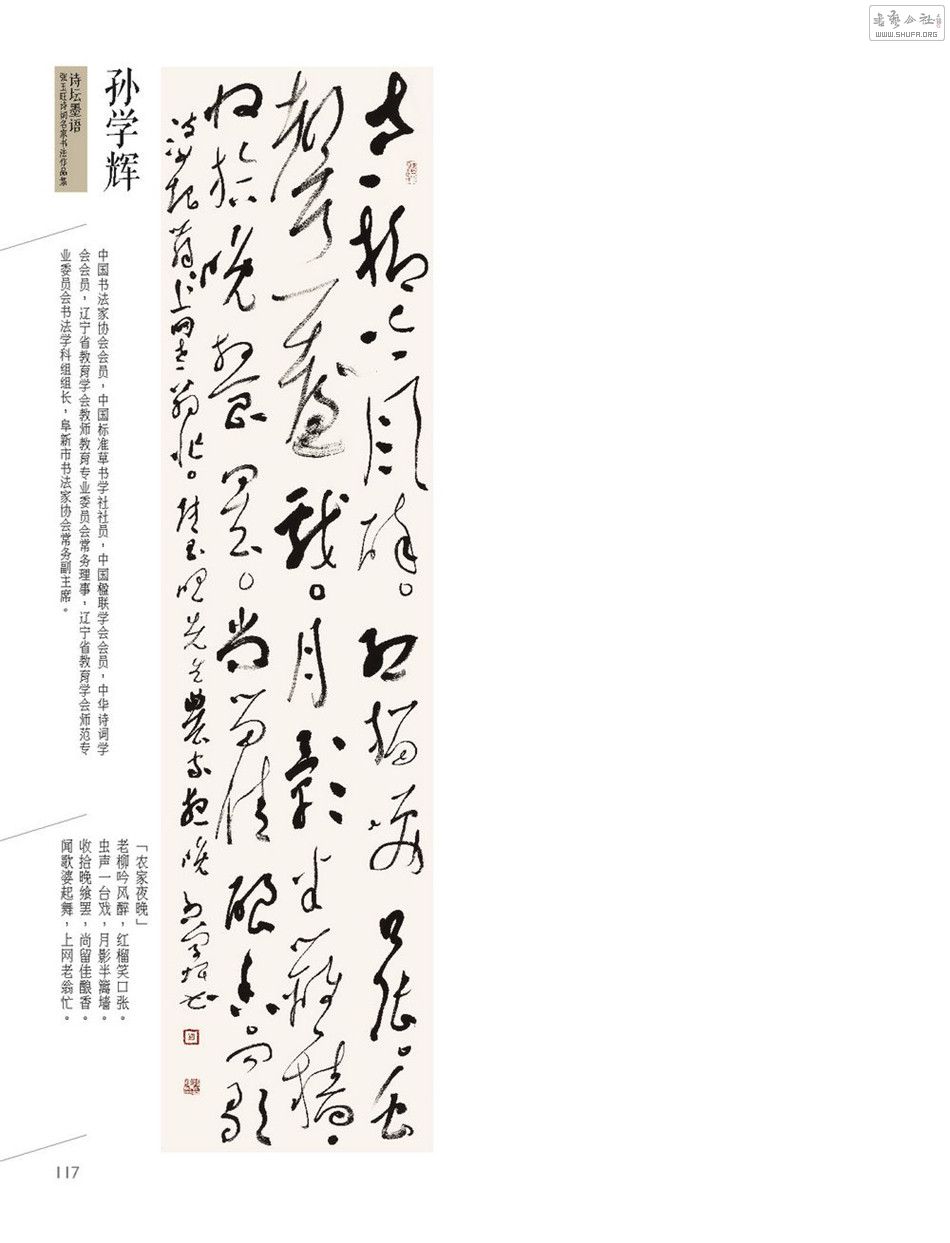 书艺公社
WWW.SHUFA.ORG
诗坛墨语
张玉旺诗词名家书法作品集
孙学辉
中国书法家协会会员，中国标准草书学社社员，中国楹联学会会员，中华诗词学
会会员，辽宁省教育学会教师教育专业委员会常务理事，辽宁省教育学会师范专
业委员会书法学科组组长，阜新市书法家协会常务副主席。
「农家夜晚」
老柳吟风醉，红榴笑口张。
虫声一台戏，月影半篱墙。
收拾晚飨罢，尚留佳酿香。
闻歌婆起舞，上网老翁忙。
老柳吟风醉。红榴笑口张。虫
声一台戏。月影半篱墙。
收拾晚飨罢。尚留佳酿香。闻歌
婆起舞上网老翁忙。
117